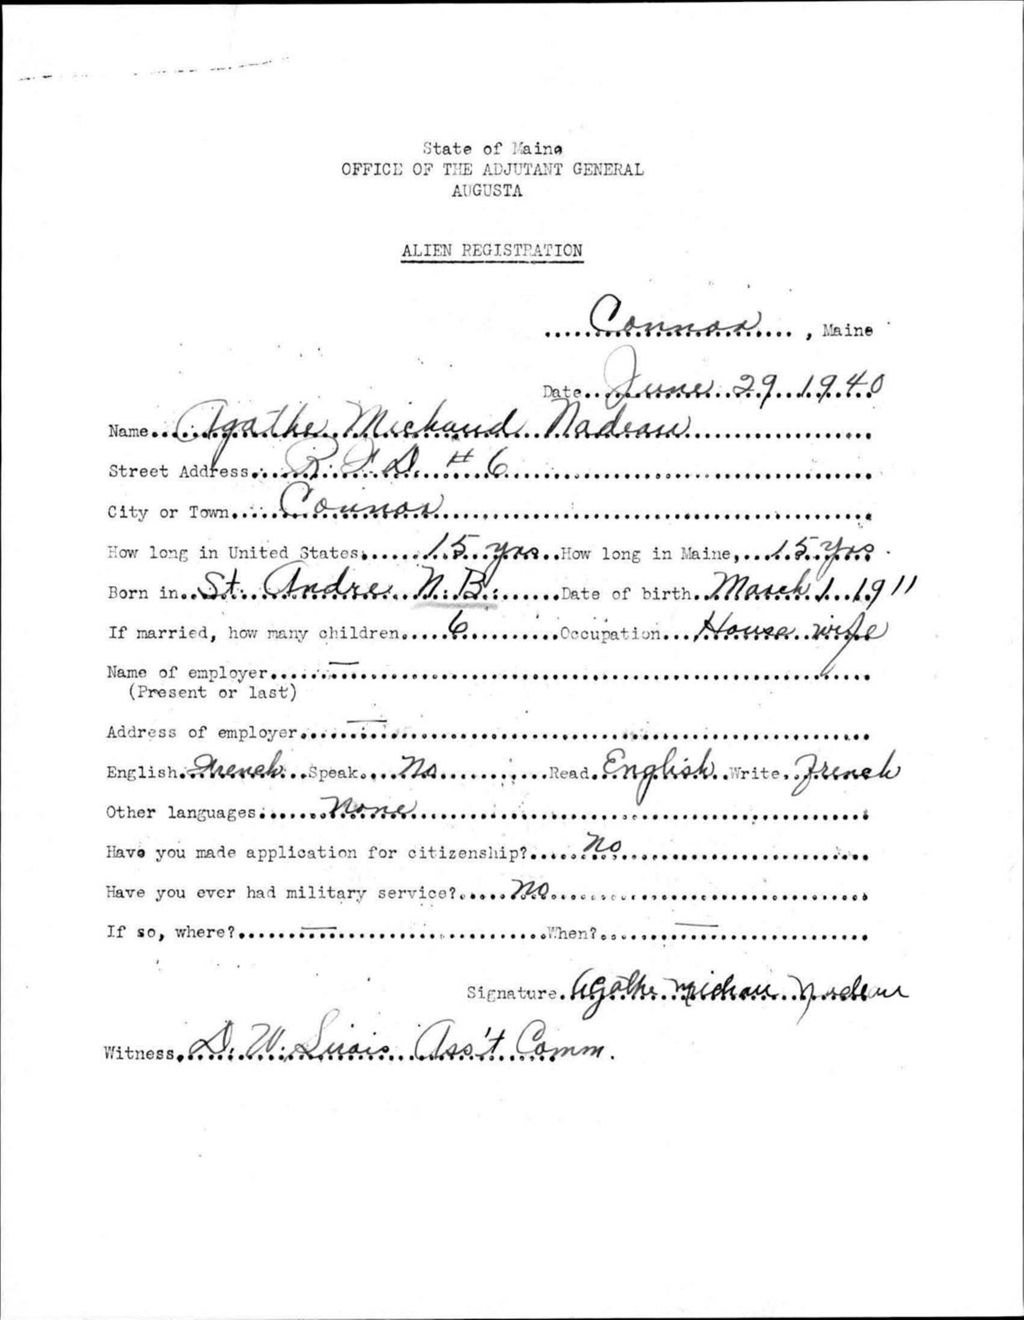 State of Maine
OFFICE OF THE ADJUTANT GENERAL
AUGUSTA
ALIEN REGISTRATION
Connor, Maine
Date June 29 1940
Name Agathe Michaud Nadeau
Street Address R.F.D. #6
City or Town Connor
How long in United States 15 yrs How long in Maine, 15 yrs
Born in St. Andre N.B. Date of birth March 1 1911
If married, how many children 6 Occupation House wife
Name of employer —
(Present or last)
Address of employer —
English French Speak No Read English Write French
Other languages None
Have you made application for citizenship? No
Have you ever had military service? No
If so, where? — When? —
Signature Agathe Michau Nadeau
Witness D. W. Sirois Ass't Comm.